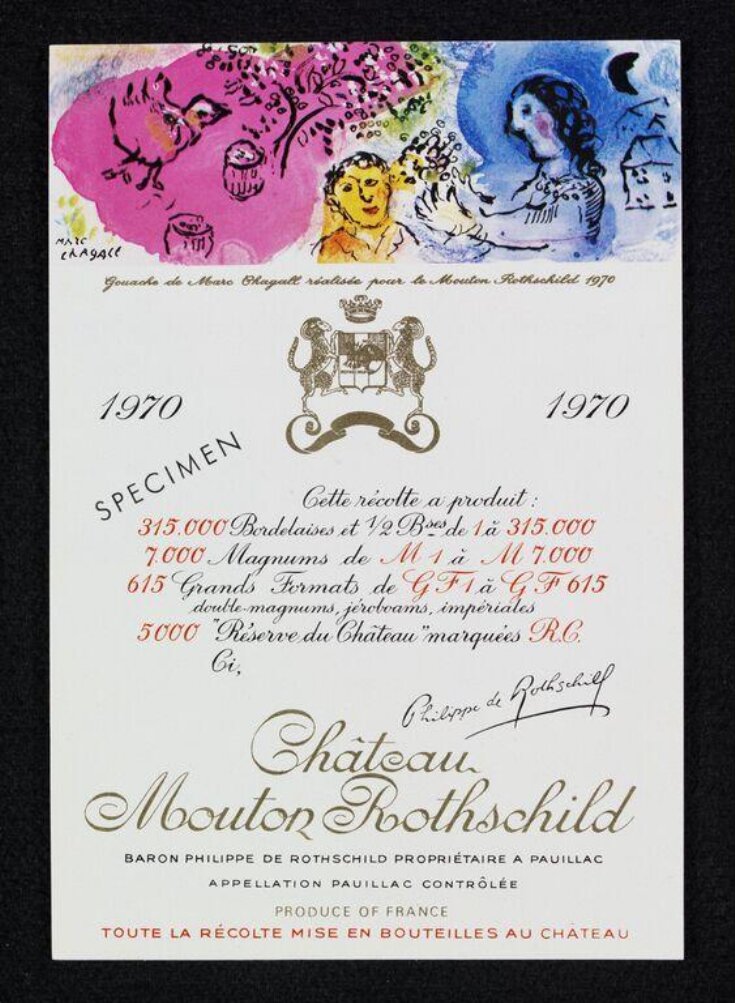 MARC
CHAGALL
Gouache de Marc Chagall réalisée pour le Mouton Rothschild 1970
1970 1970
SPECIMEN
Cette récolte a produit :
315.000 Bordelaises et 1/2 Bses de 1 à 315.000
7.000 Magnums de M 1 à M 7.000
615 Grands Formats de G F 1 à G F 615
double-magnums, jéroboams, impériales
5000 "Réserve du Château" marquées R.C.
Ci,
Philippe de Rothschild
Château
Mouton Rothschild
BARON PHILIPPE DE ROTHSCHILD PROPRIÉTAIRE A PAUILLAC
APPELLATION PAUILLAC CONTRÔLÉE
PRODUCE OF FRANCE
TOUTE LA RÉCOLTE MISE EN BOUTEILLES AU CHÂTEAU